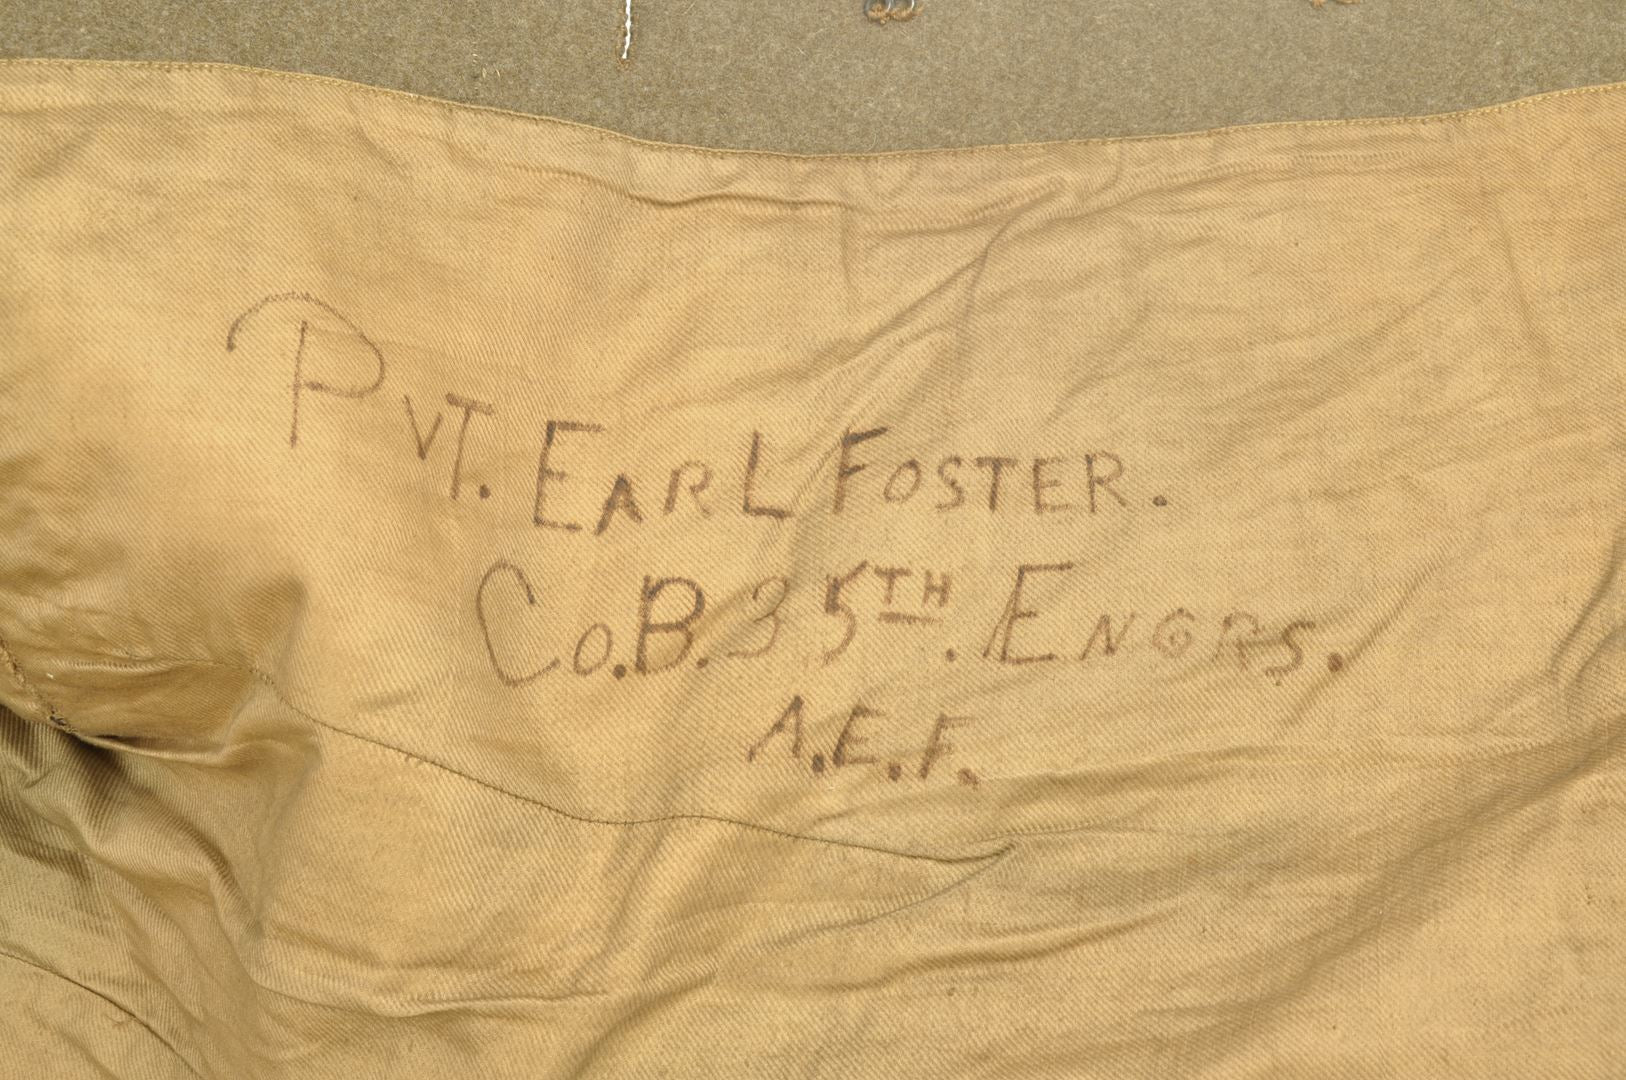 PVT. EARL FOSTER.
Co. B. 35TH. ENGRS.
A.E.F.